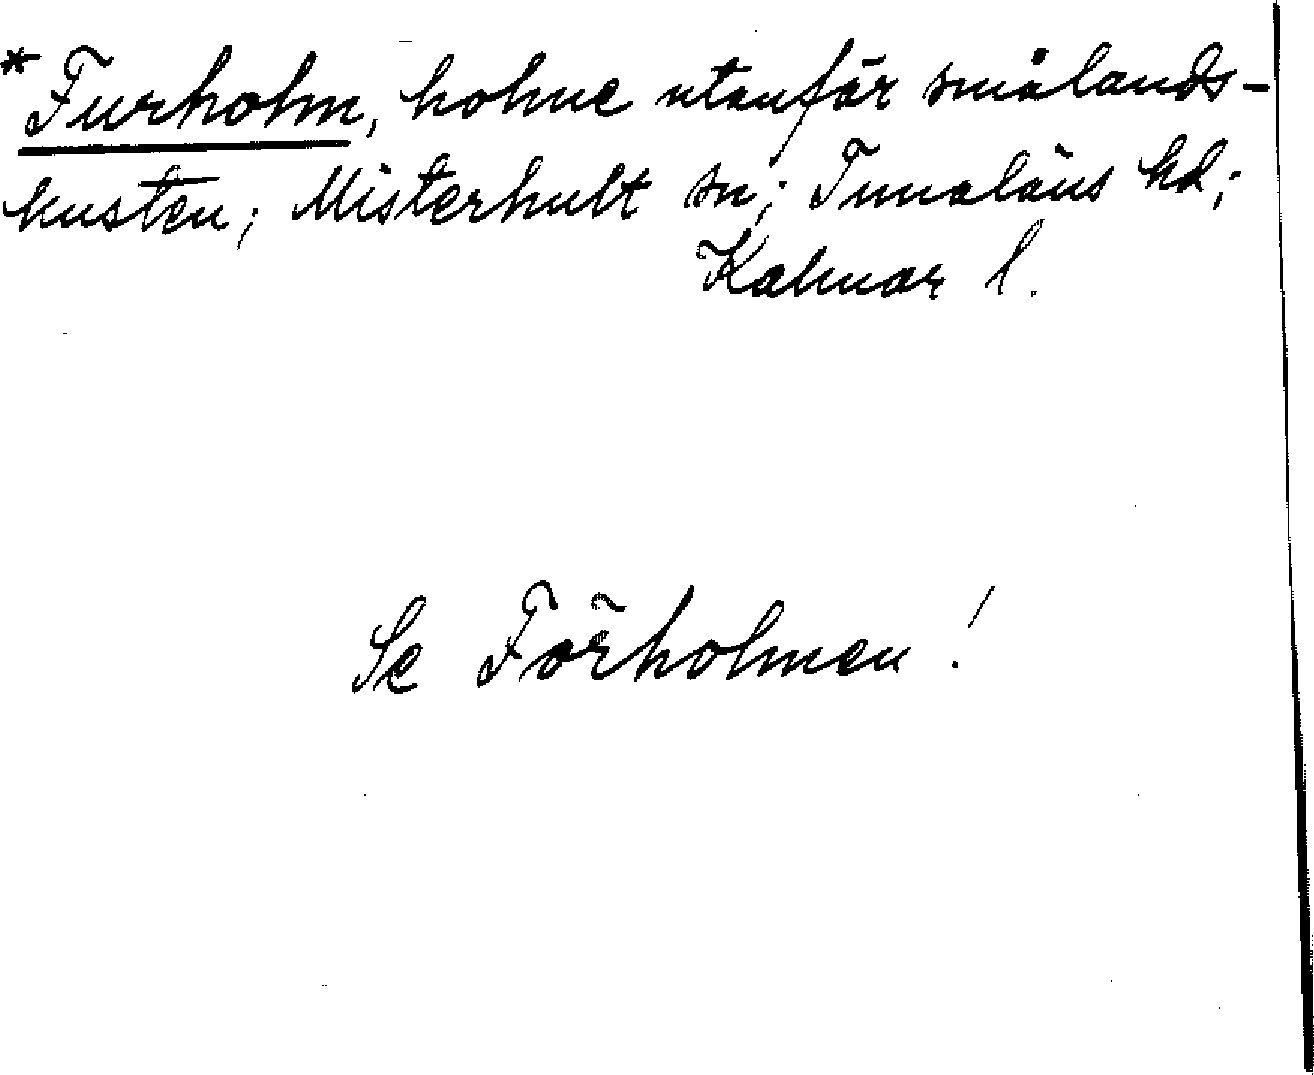 *Furholm, holme utanför smålands-
kusten; Misterhult sn; Tunaläns hd;
Kalmar l.
Se Förholmen!